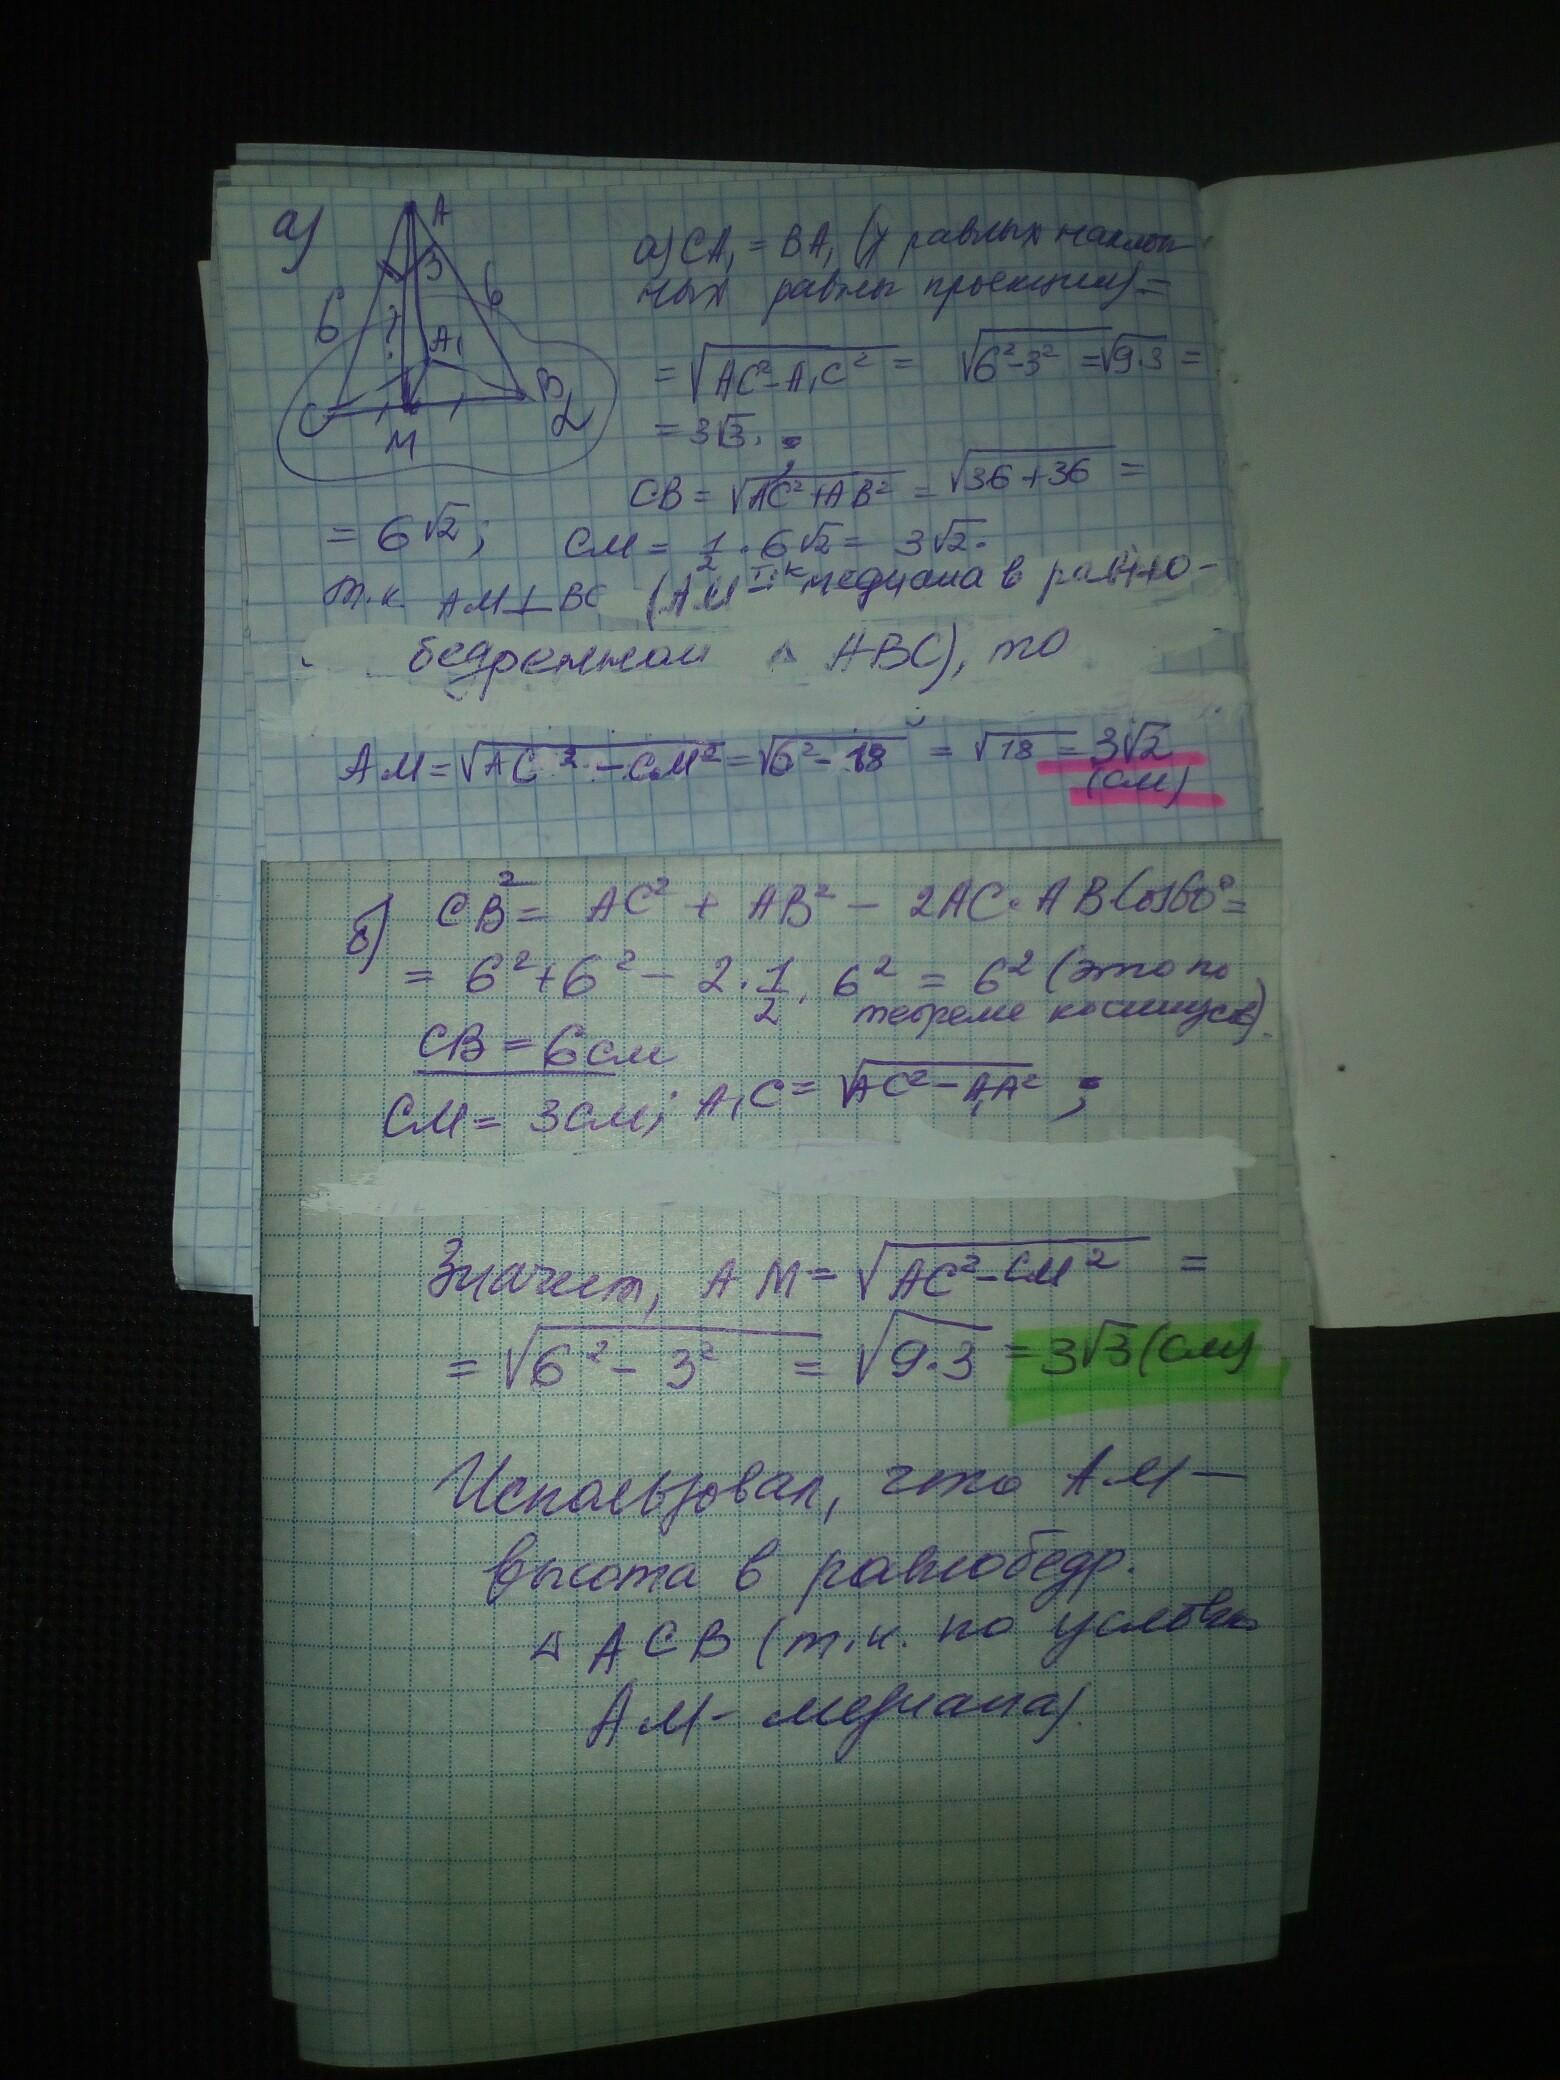 а)
A
3
6
6
?
A₁
C
M
B
α
а) CA₁ = BA₁ (у равных наклон
ных равны проекции) =
= √AC² - A₁C² = √6² - 3² = √9·3 =
= 3√3. ;
CB = √AC² + AB² = √36 + 36 =
= 6√2; CM = 1/2 · 6√2 = 3√2.
т.к. AM ⊥ BC (AM - т.к медиана в равно-
бедренном △ ABC), то
AM = √AC² - CM² = √6² - 18 = √18 = 3√2
(см)
б) CB² = AC² + AB² - 2AC · AB Cos60° =
= 6² + 6² - 2 · 1/2 · 6² = 6² (это по
теореме косинусов).
CB = 6 см
CM = 3 см; A₁C = √AC² - A₁A² ;
Значит, AM = √AC² - CM² =
= √6² - 3² = √9·3 = 3√3 (см)
Использовал, что AM -
высота в равнобедр.
△ ACB (т.к. по условию
AM - медиана).